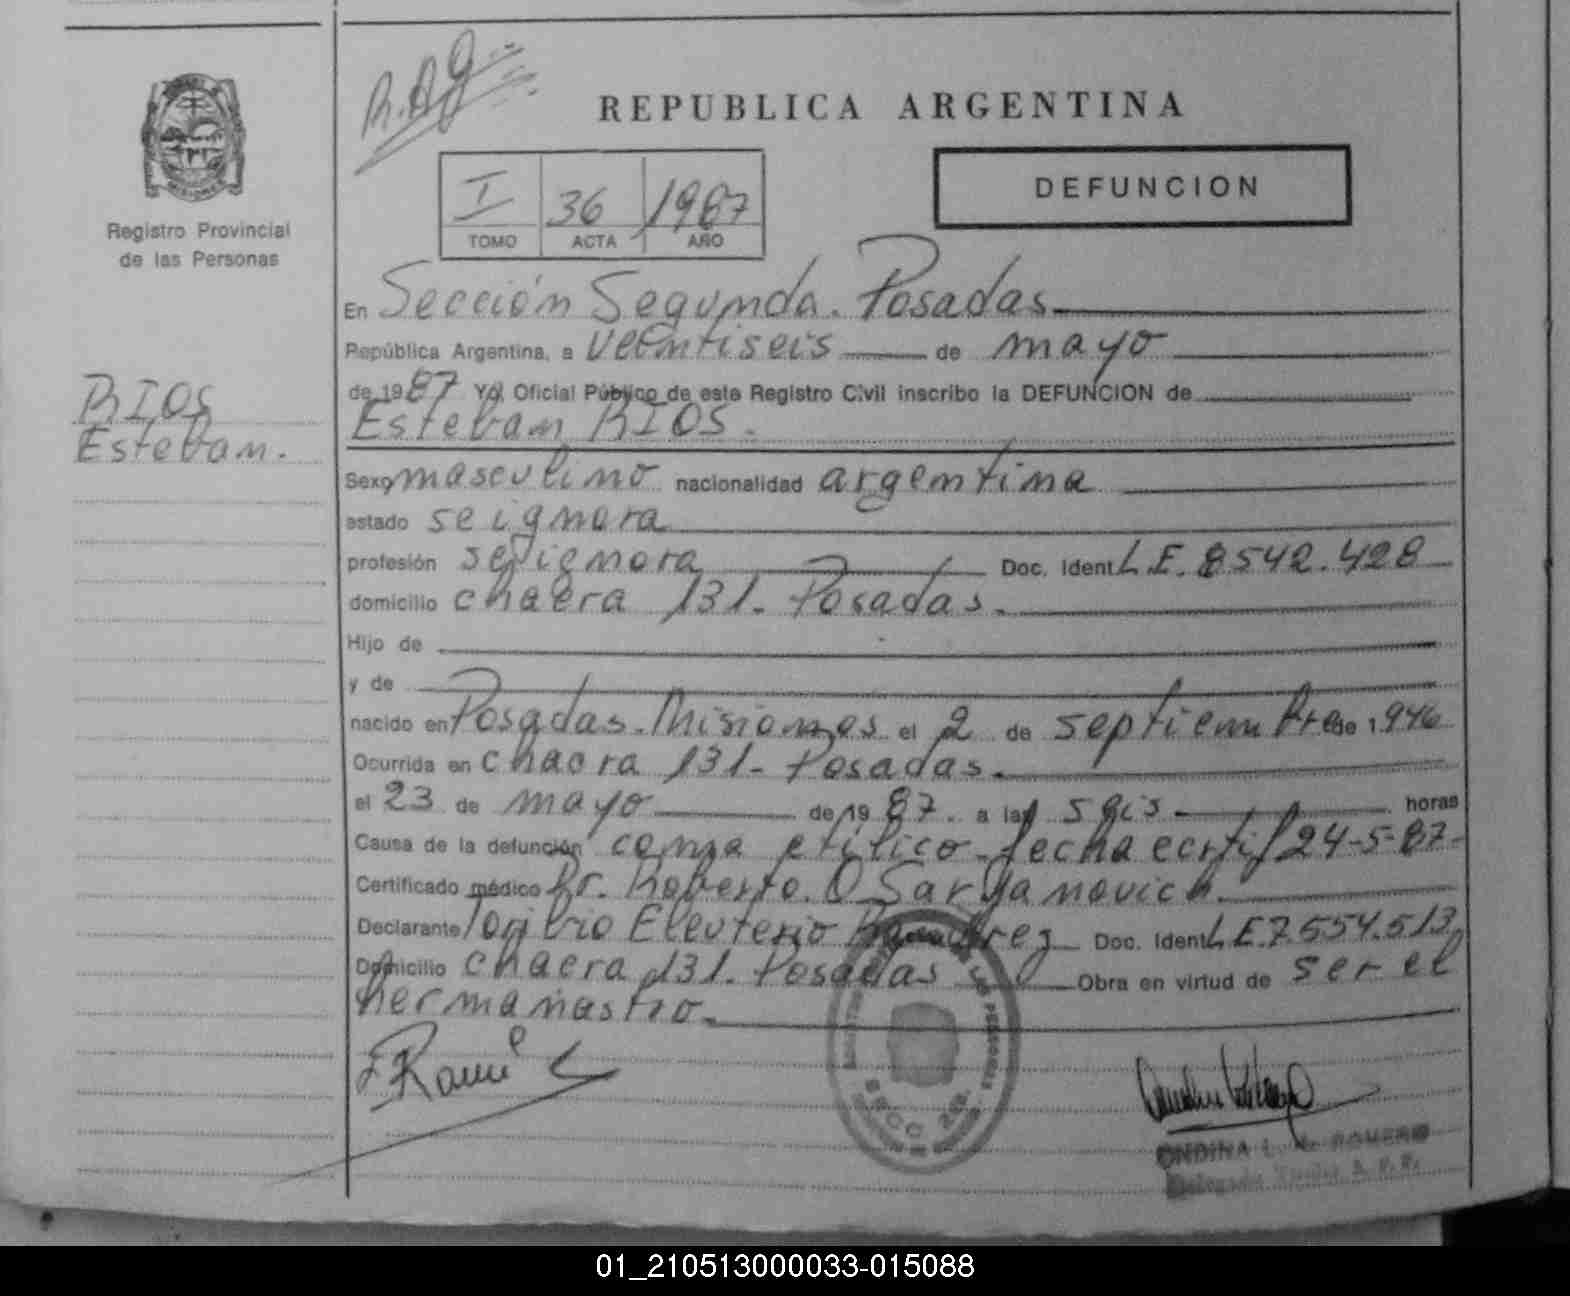 R.A9
REPUBLICA ARGENTINA
I 36 1987
TOMO ACTA AÑO
DEFUNCION
Registro Provincial
de las Personas
RIOS
Esteban.
En Sección Segunda. Posadas
República Argentina, a veentiseis de mayo
de 1987 Yo, Oficial Público de este Registro Civil inscribo la DEFUNCION de
Esteban RIOS.
Sexo masculino nacionalidad argentina
estado se ignora
profesión se ignora Doc. Ident. L.E. 8542.428
domicilio chacra 131. Posadas.
Hijo de
y de
nacido en Posadas. Misiones el 2 de septiembre de 1946
Ocurrida en chacra 131- Posadas.
el 23 de mayo de 1987. a las seis horas
Causa de la defunción coma etílico. fecha certif 24-5-87-
Certificado médico Dr. Roberto. O
Declarante Toribio Eleuterio Doc. Ident. L.E 7.554.513
Domicilio chacra 131. Posadas Obra en virtud de ser el
hermanastro.
ONDINA L. ROMERO
01_210513000033-015088